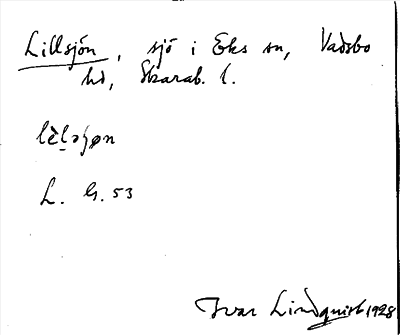 Lillsjön, sjö i Eks sn, Vadsbo
hd, Skarab. l.
lèləʃøn
L. G. 53
Ivar Lindquist 1928